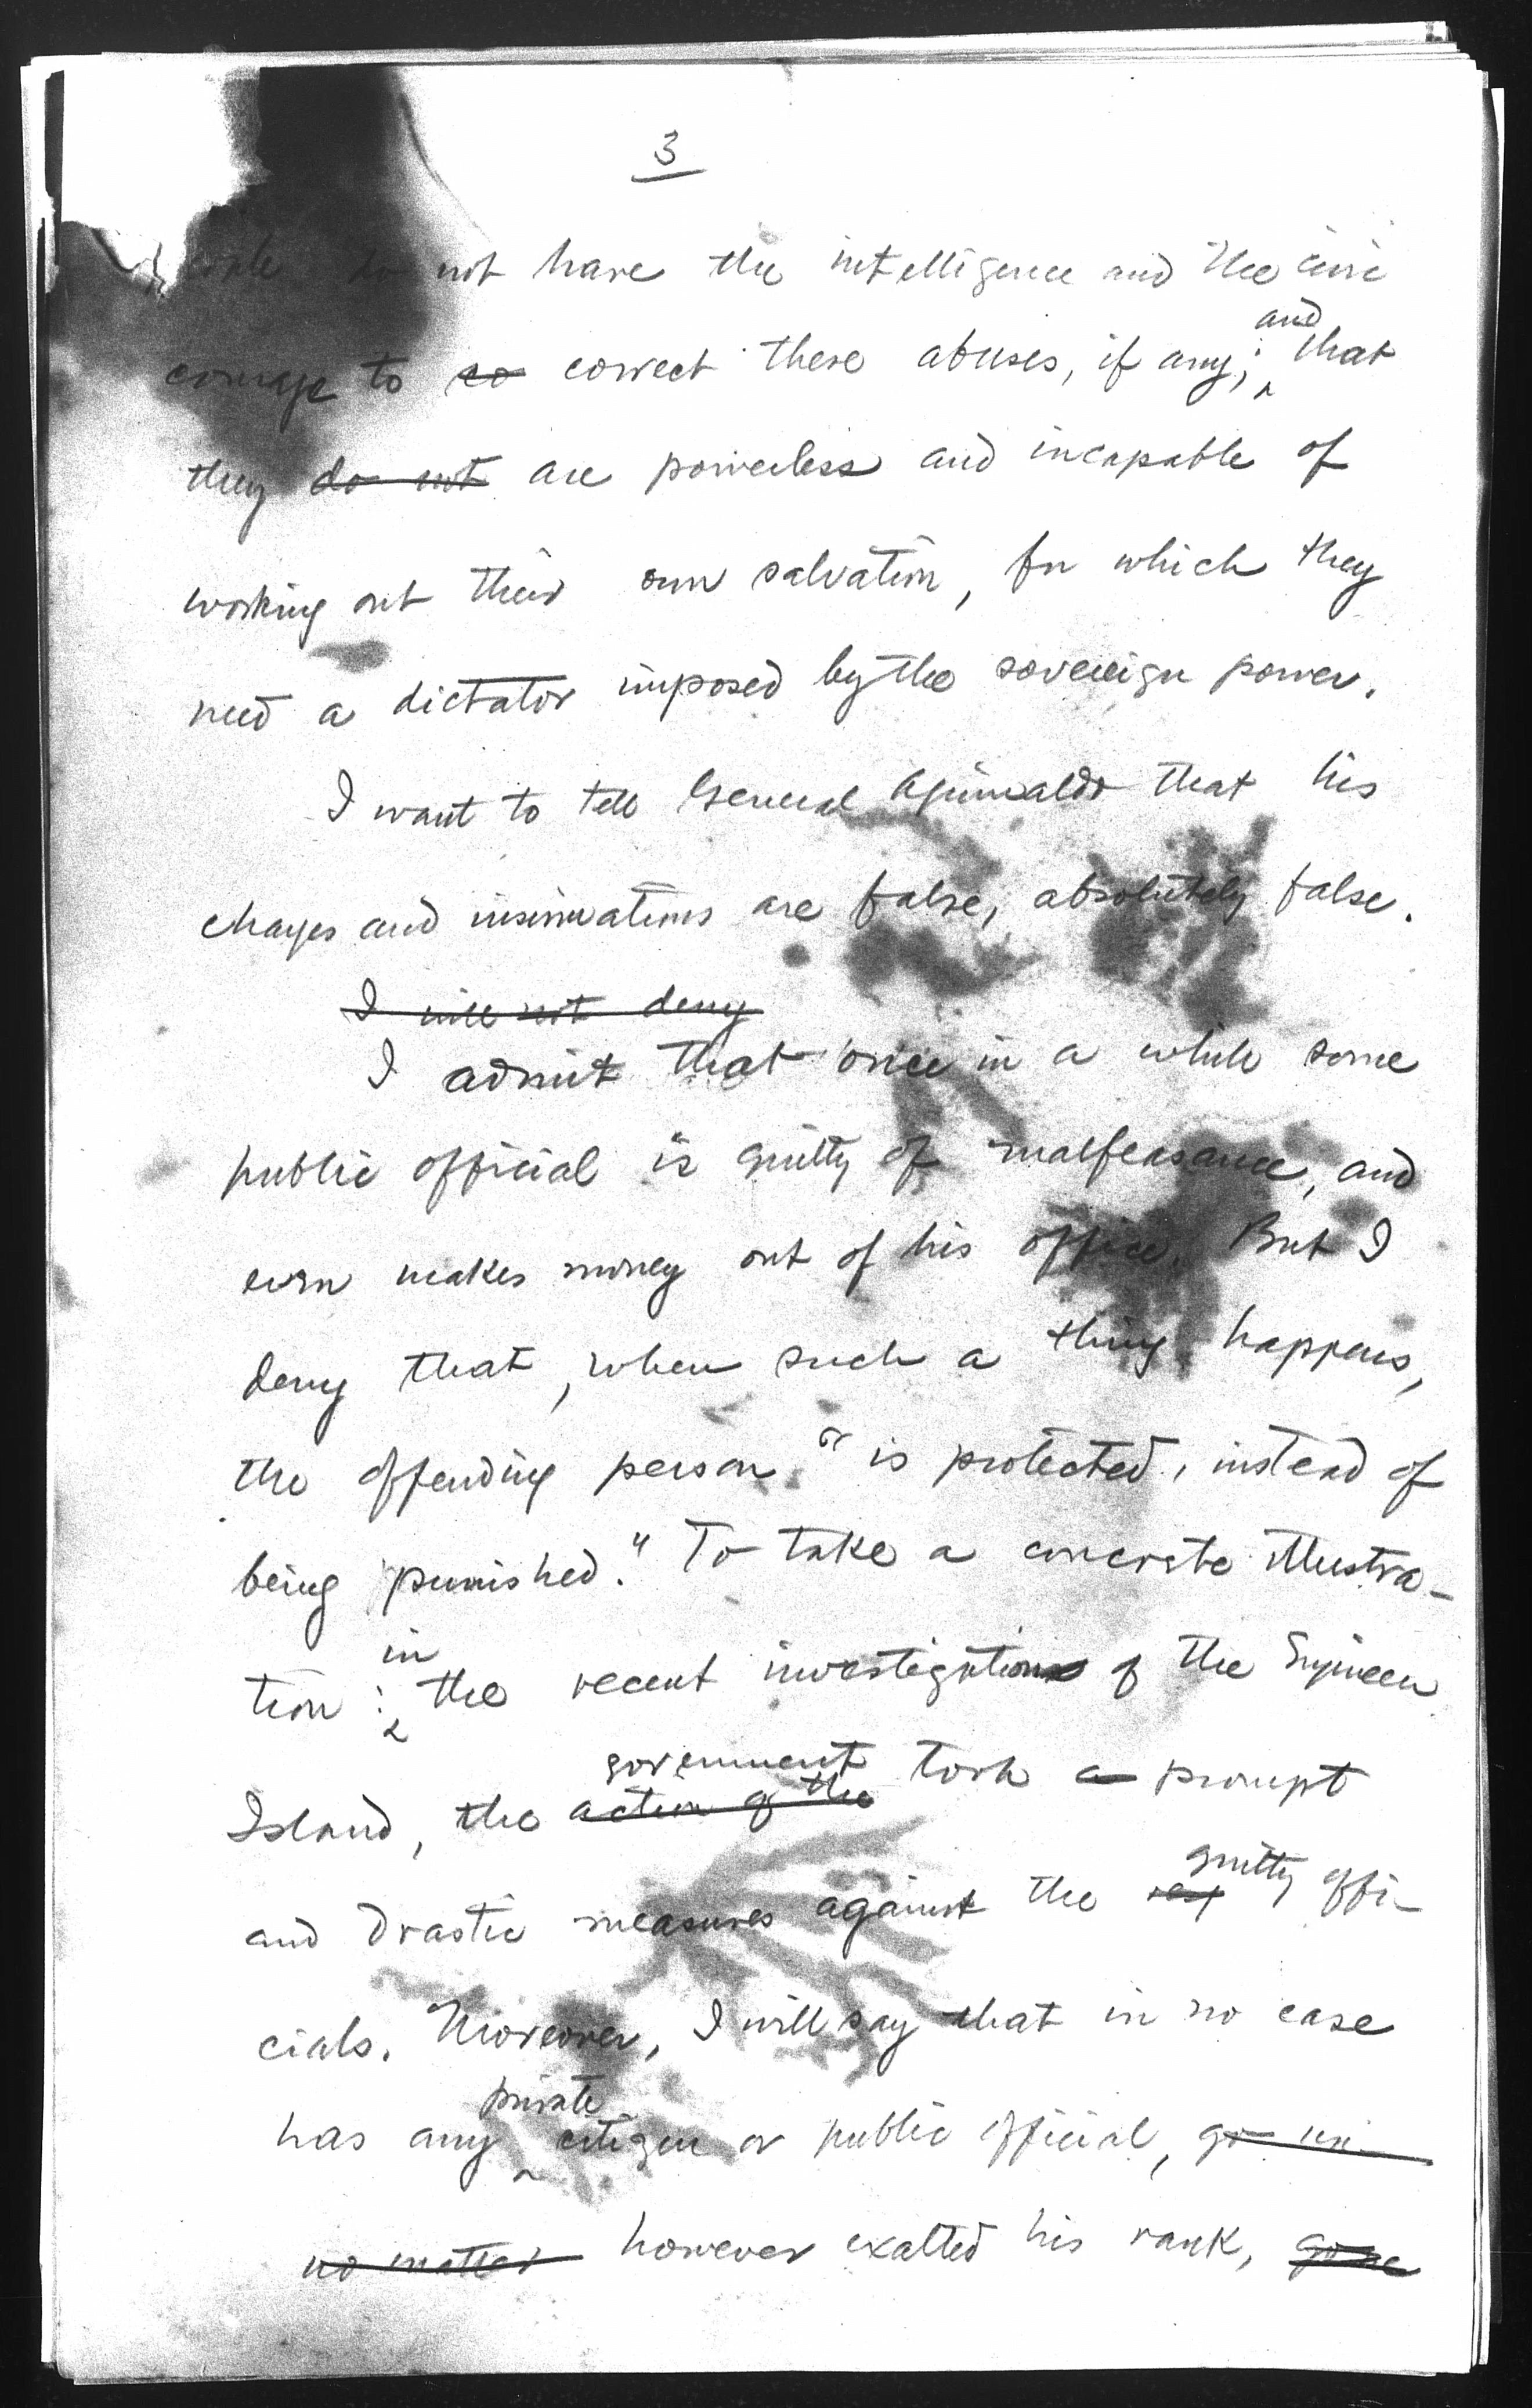 3
people do not have the intelligence and the civic
courage to so correct these abuses, if any; and that
they do not are powerless and incapable of
working out their own salvation, for which they
need a dictator imposed by the sovereign power.
I want to tell General Aguinaldo that his
charges and insinuations are false, absolutely false.
I will not deny
I admit that once in a while some
public official is guilty of malfeasance, and
even makes money out of his office. But I
deny that, when such a thing happens,
the offending person "is protected, instead of
being punished." To take a concrete illustra-
tion: in the recent investigation of the Engineer
Island, the action of the government took a prompt
and drastic measures against the guilty offi-
cials. Moreover, I will say that in no case
has any private citizen or public official, go un-
no matter however exalted his rank, gone